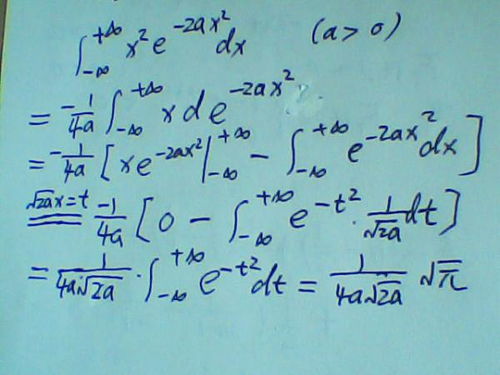 ∫_{-∞}^{+∞} x² e^{-2ax²} dx (a > 0)
= -1/4a ∫_{-∞}^{+∞} x d e^{-2ax²}
= -1/4a [ x e^{-2ax²} |_{-∞}^{+∞} - ∫_{-∞}^{+∞} e^{-2ax²} dx ]
√2a x = t -1/4a [ 0 - ∫_{-∞}^{+∞} e^{-t²} · 1/√2a dt ]
= 1/4a√2a · ∫_{-∞}^{+∞} e^{-t²} dt = 1/4a√2a √π